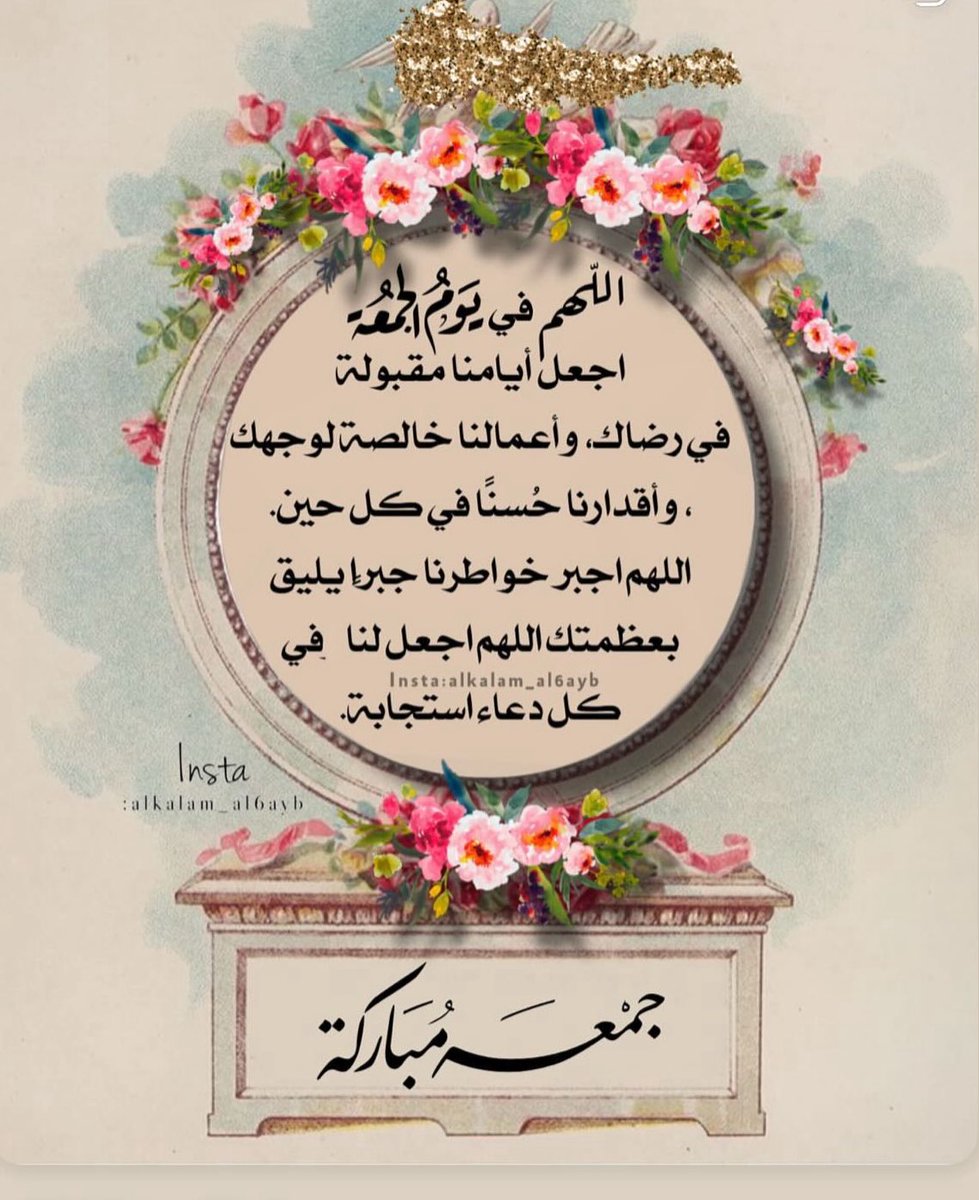 اللّهم في يَوَمُ الجمُعة
اجعل أيامنا مقبولة
في رضاك، وأعمالنا خالصة لوجهك
، وأقدارنا حُسنًا في كل حين.
اللهم اجبر خواطرنا جبراً يليق
بعظمتك اللهم اجعل لنا في
Insta:alkalam_al6ayb
كل دعاء استجابة.
Insta
:alkalam_al6ayb
جمْعَـة مُبَاركة